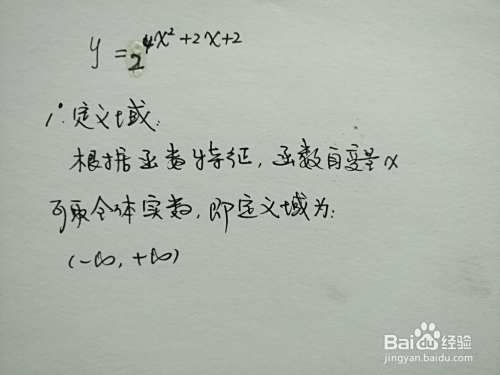 y = 2^{4x²+2x+2}
1°. 定义域:
根据函数特征, 函数自变量x
可取全体实数, 即定义域为:
(-∞, +∞)
Baidu 经验
jingyan.baidu.com